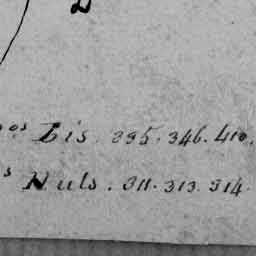 os Lis. 395. 346. 410.
s Nuls. 311. 313. 314.